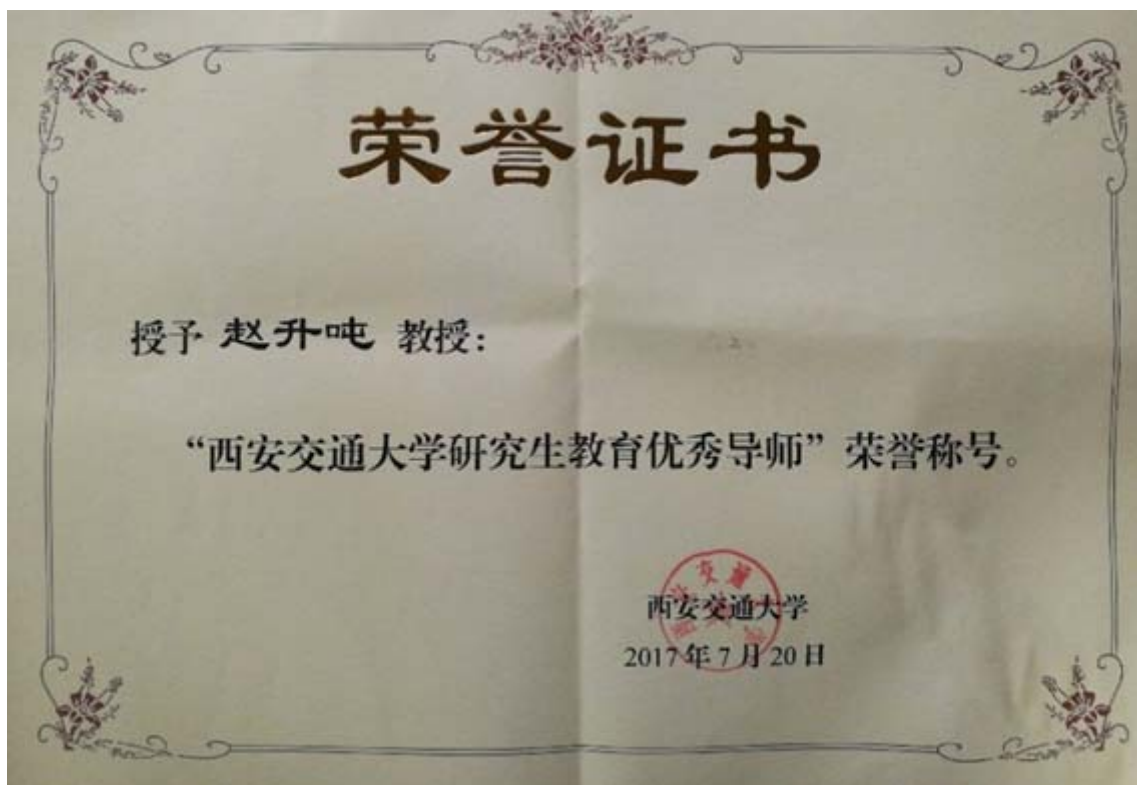 荣誉证书
授予 赵升吨 教授：
“西安交通大学研究生教育优秀导师”荣誉称号。
西安交通大学
2017年7月20日